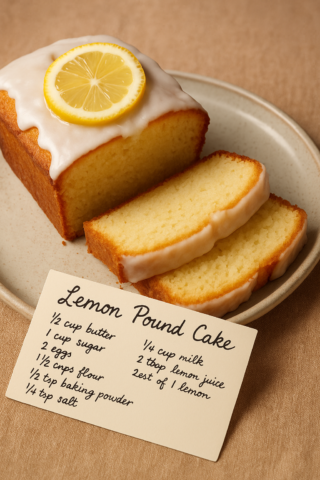 Lemon Pound Cake
1/2 cup butter
1 cup sugar
2 eggs
1 1/2 cnps flour
1/2 tsp baking powder
1/4 tsp salt
1/4 cup milk
2 tbop lemon juice
2est of 1 lemon